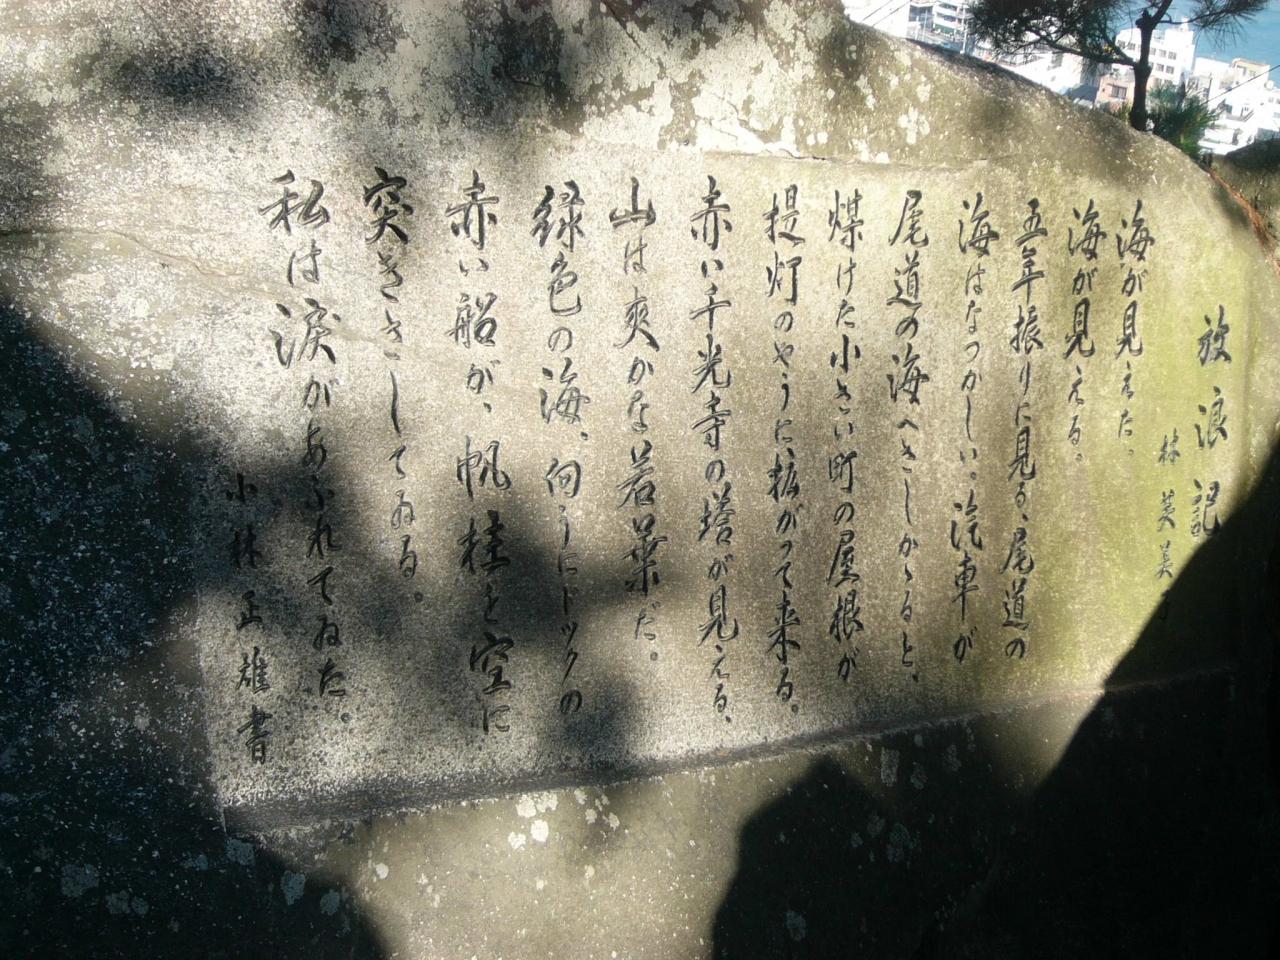 放浪記
林芙美子
海が見えた。
海が見える。
五年振りに見る、尾道の
海はなつかしい。汽車が
尾道の海へさしかゝると、
煤けた小さい町の屋根が
提灯のやうに、拡がって来る。
赤い千光寺の塔が見える、
山は爽かな若葉だ。
緑色の海、向うにドックの
赤い船が、帆柱を空に
突きさしてゐる。
私は涙があふれてゐた。
小林正雄書